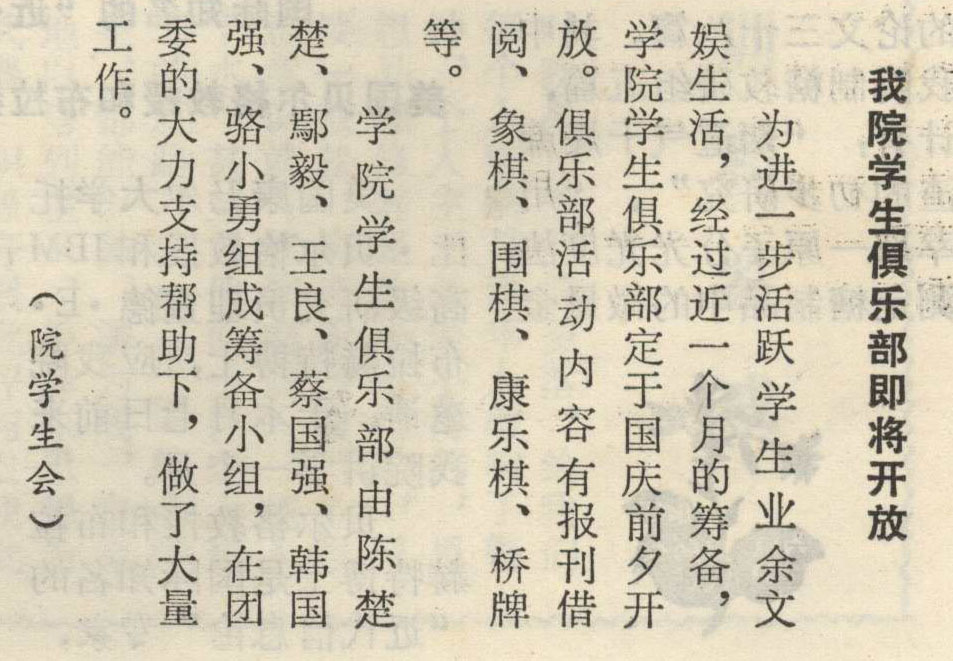 我院学生俱乐部即将开放
为进一步活跃学生业余文
娱生活，经过近一个月的筹备，
学院学生俱乐部定于国庆前夕开
放。俱乐部活动内容有报刊借
阅、象棋、围棋、康乐棋、桥牌
等。
学院学生俱乐部由陈楚
楚、鄢毅、王良、蔡国强、韩国
强、骆小勇组成筹备小组，在团
委的大力支持帮助下，做了大量
工作。
（院学生会）